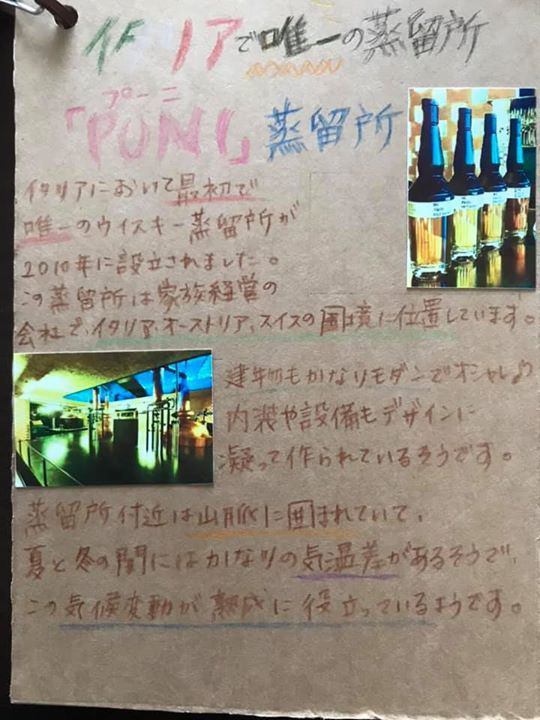 イタリアで唯一の蒸留所
プーニ
「PUNI」蒸留所
イタリアにおいて最初で
唯一のウイスキー蒸留所が
2010年に設立されました。
この蒸留所は家族経営の
会社で、イタリア、オーストリア、スイスの国境に位置しています。
建物もかなりモダンでオシャレ♪
内装や設備もデザインに
凝って作られているそうです。
蒸留所付近は山脈に囲まれていて、
夏と冬の間にはかなりの気温差があるそうで、
この気候変動が熟成に役立っているようです。